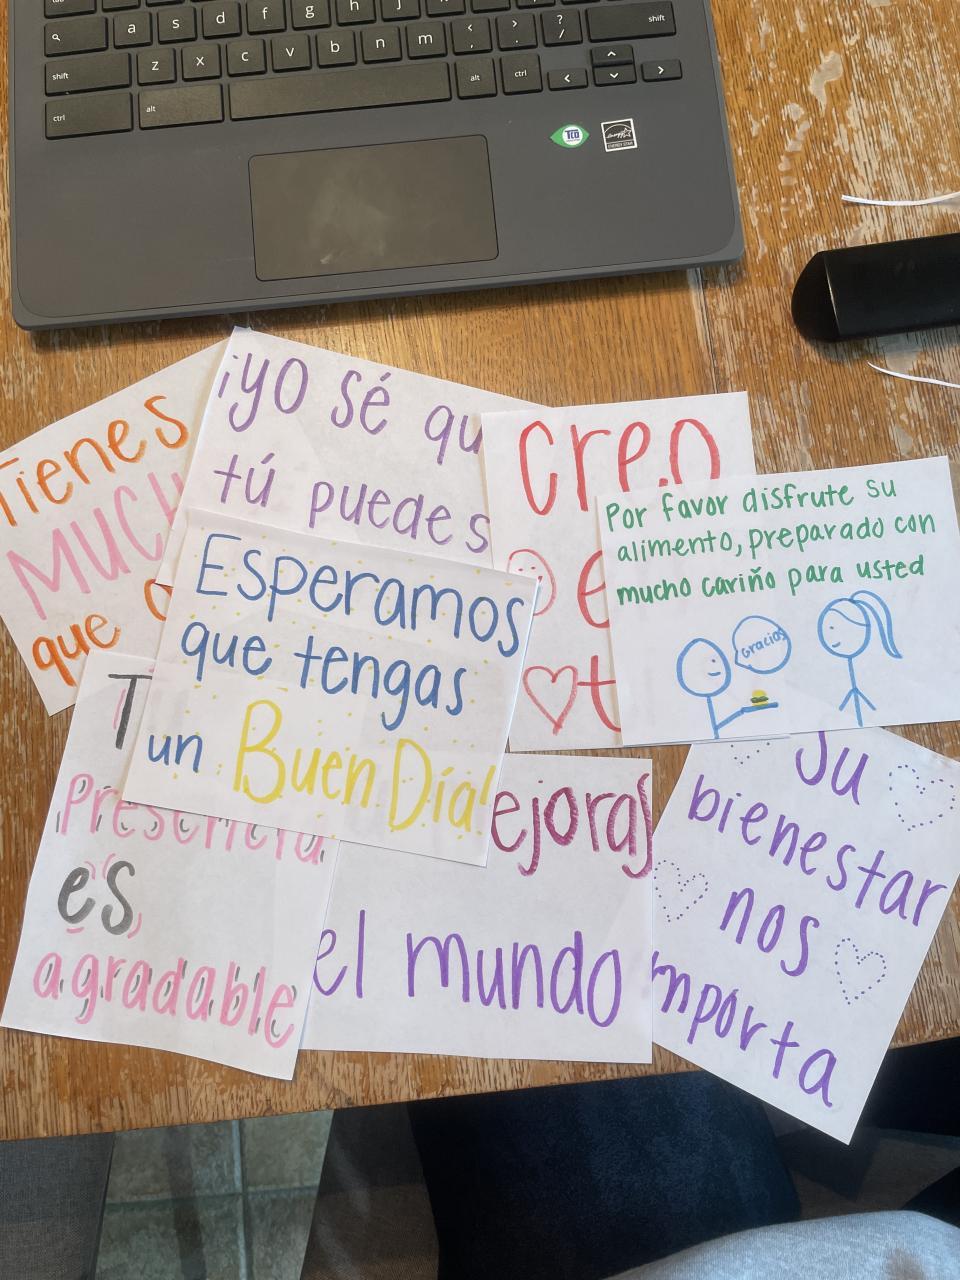 a s d f g h j
z x c v b n m < , > . ? / shift
shift
ctrl alt alt ctrl
TCO
ENERGY STAR
Tienes
que
¡yo sé
tú puedes
creo
Por favor disfrute su
alimento, preparado con
mucho cariño para usted
Gracias
Esperamos
que tengas
un Buen Día!
Presencia
es
agradable
ejoras
el mundo
Su
bienestar
nos
mporta